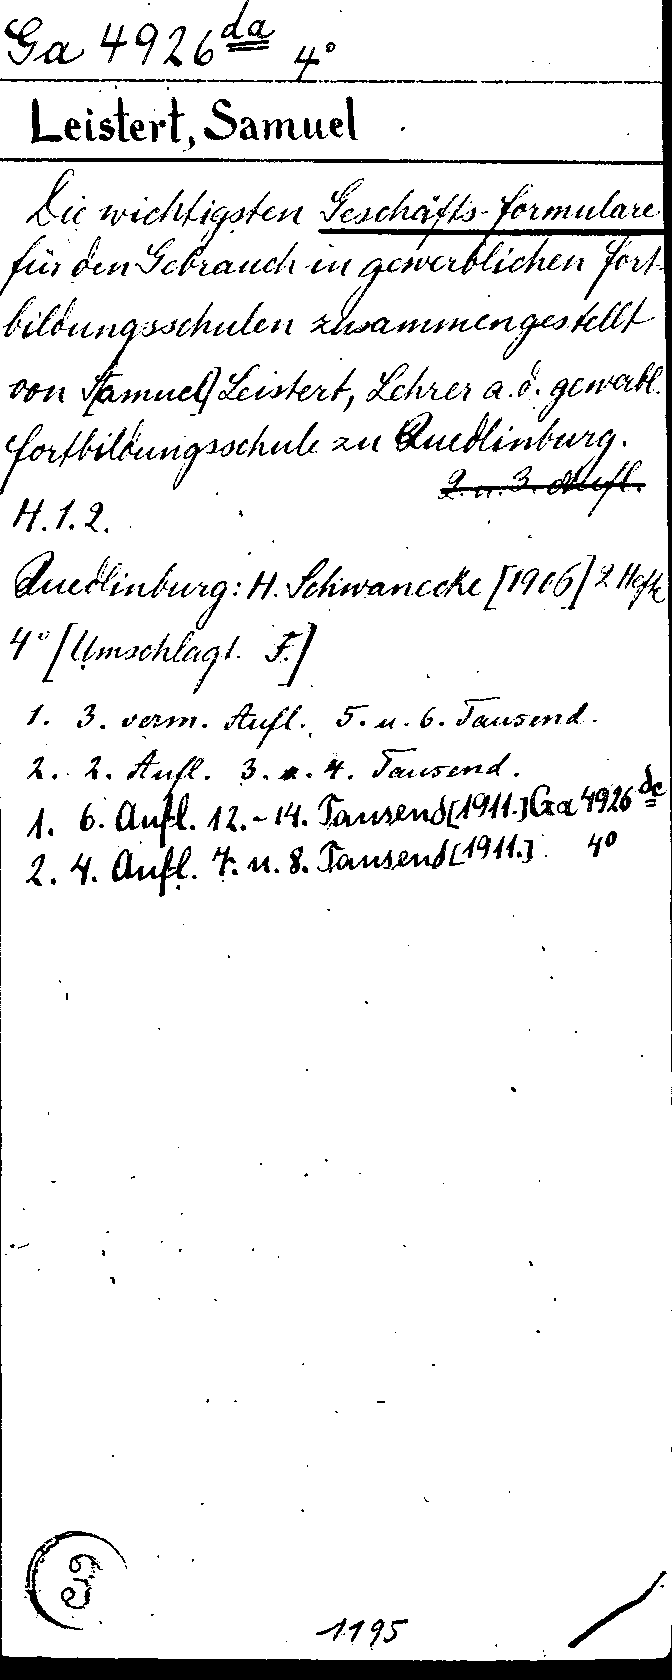 Ga 4926 da 4°
Leistert, Samuel
Die wichtigsten Geschäfts-Formulare
für den Gebrauch in gewerblichen Fort-
bildungsschulen zusammengestellt
von S[amuel] Leistert, Lehrer a. d. gewerbl.
Fortbildungsschule zu Quedlinburg.
2. u. 3. Aufl.
H. 1. 2.
Quedlinburg: H. Schwanecke [1906] 2 Hefte
4° [Umschlagt. F.]
1. 3. verm. Aufl. 5. u. 6. Tausend.
2. 2. Aufl. 3. u. 4. Tausend.
1. 6. Aufl. 12.-14. Tausend [1911.] Ga 4926 de
2. 4. Aufl. 7. u. 8. Tausend [1911.] 4°
1195